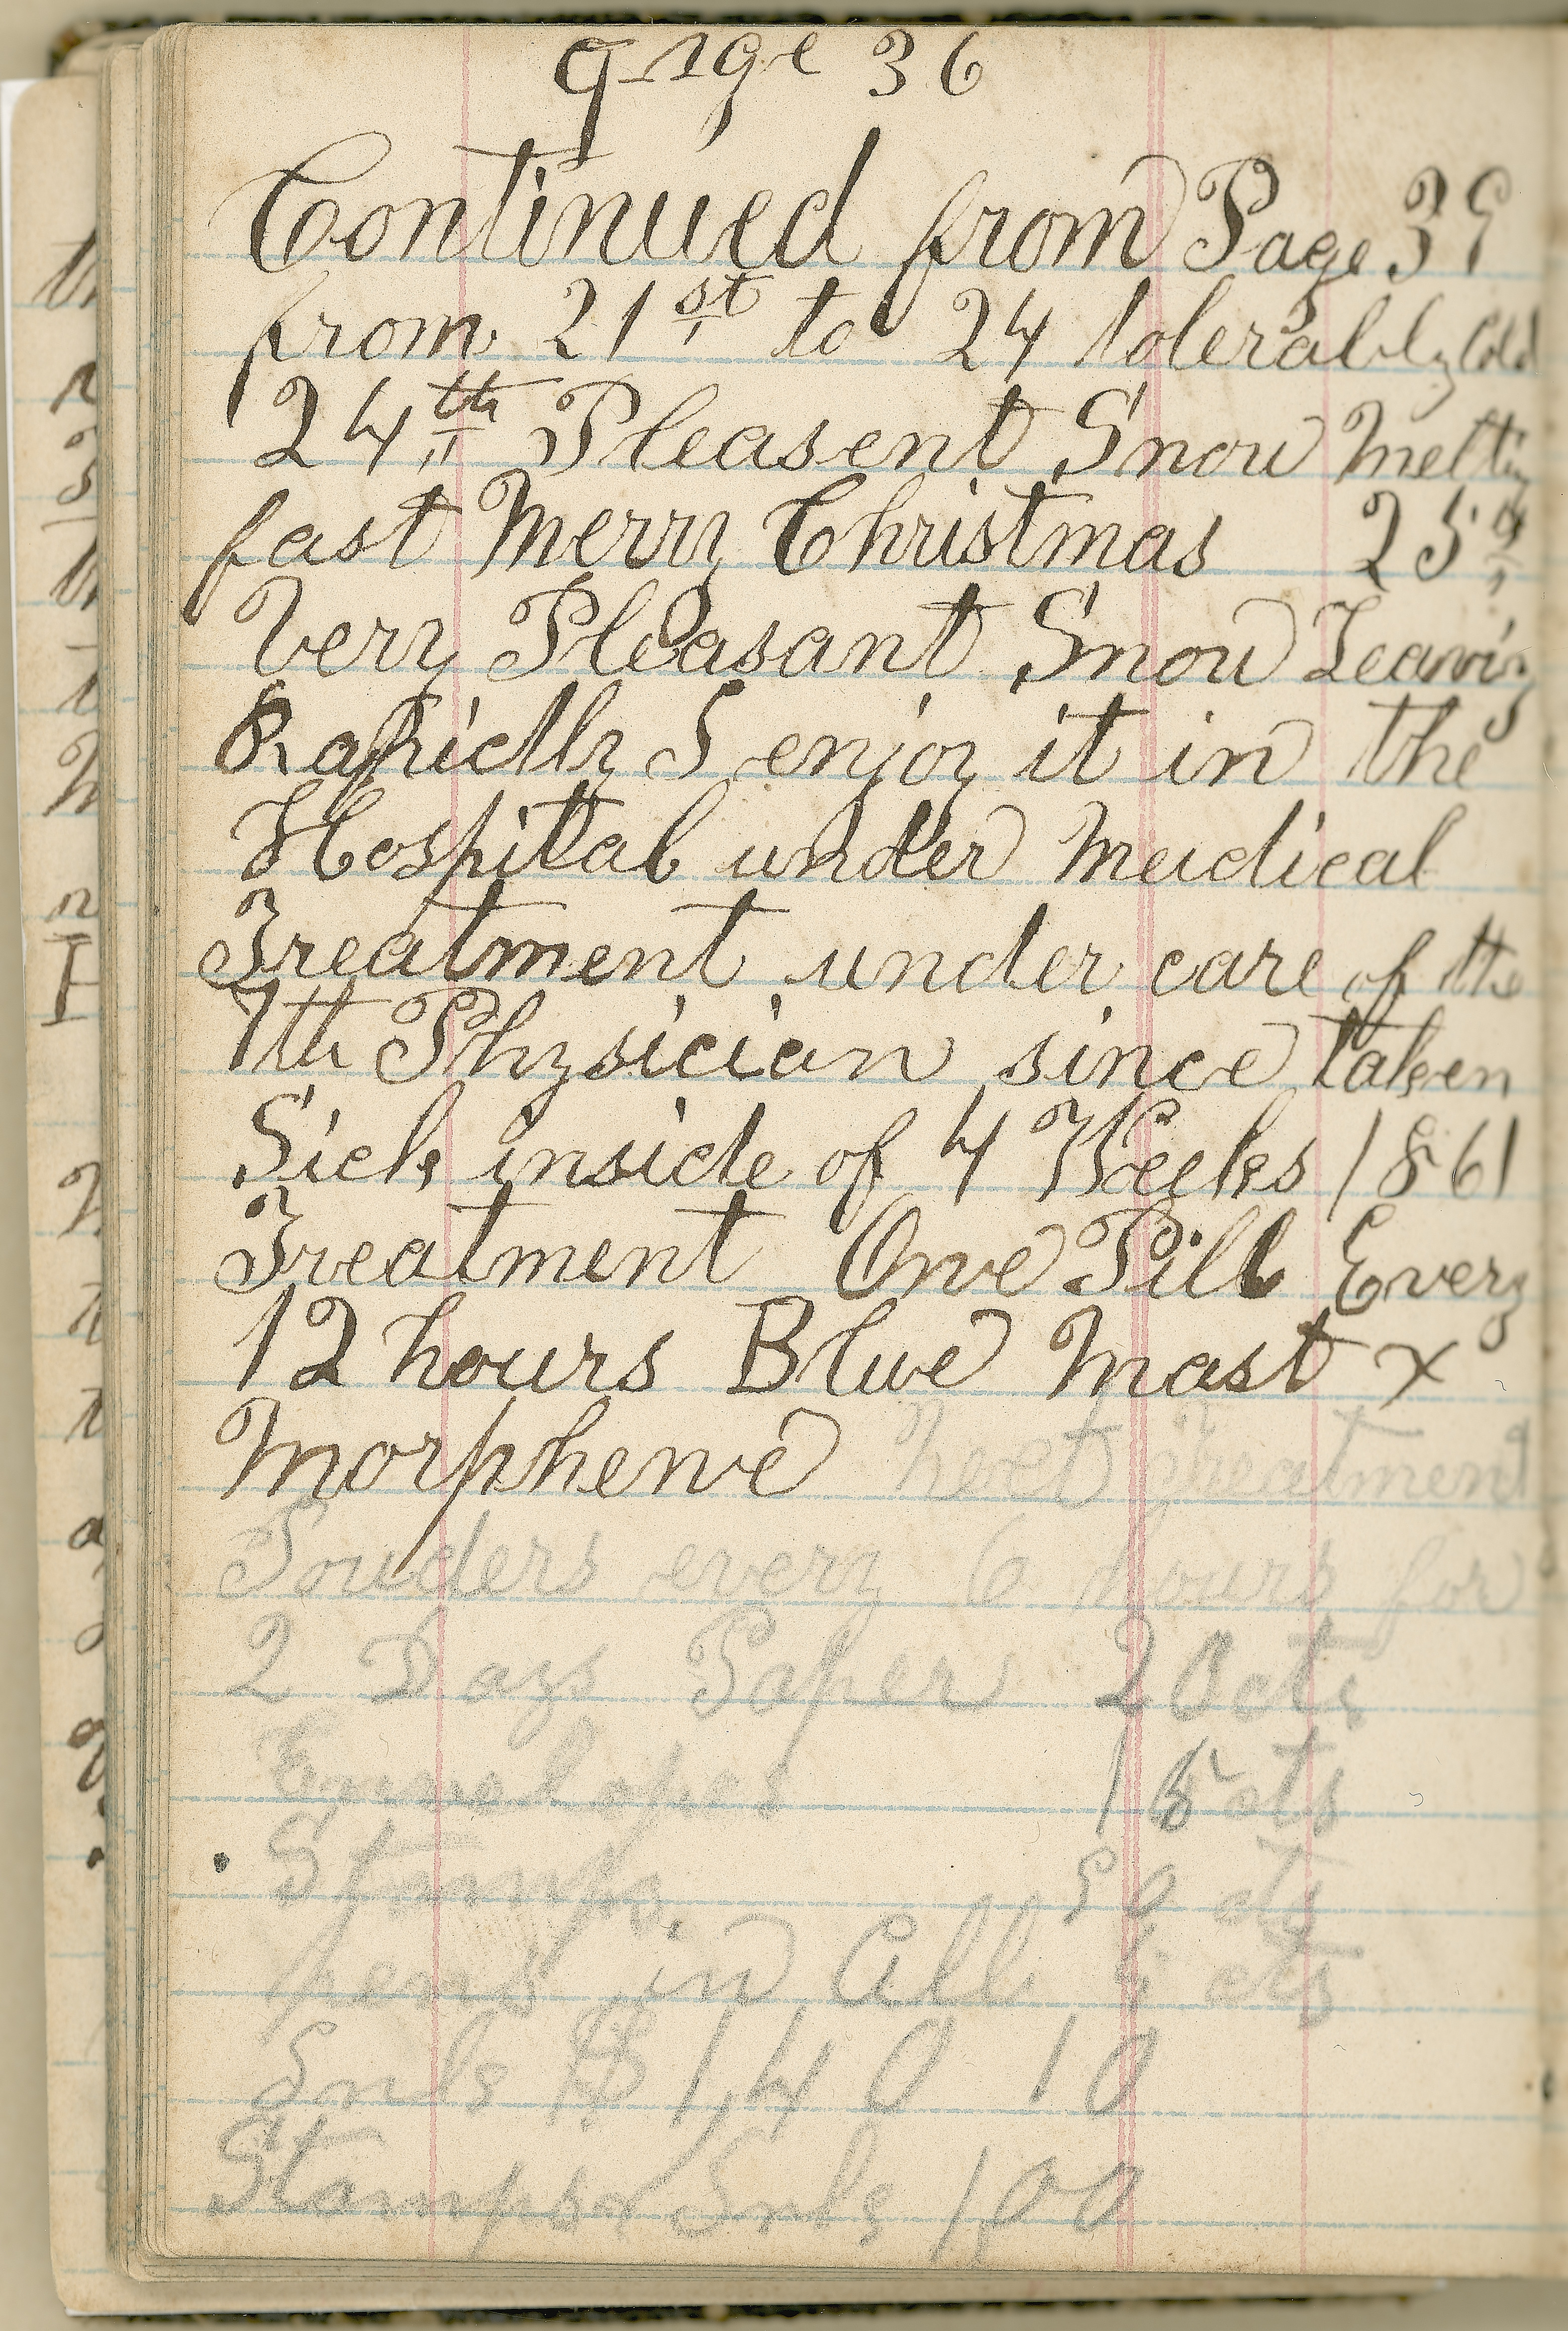 Page 36
Continued from Page 35
from 21st to 24 tolerably Cold
24th Pleasent Snow Melting
fast Merry Christmas 25th
Very Pleasant Snow Leaving
Rapidly I enjoy it in the
Hospital under Meidical
Treatment under care of the
7th Physician since taken
Sick inside of 4 Weeks 1861
Treatment One Pill Every
12 hours Blue Mast x
Morphene Next Treatment
Pouders every 6 hours for
2 Days Paper 20 cts
Envelopes 15 cts
Stamps 50 cts
pens in All 5 cts
Inls $1,40 10
Stamps x Inls 1,00